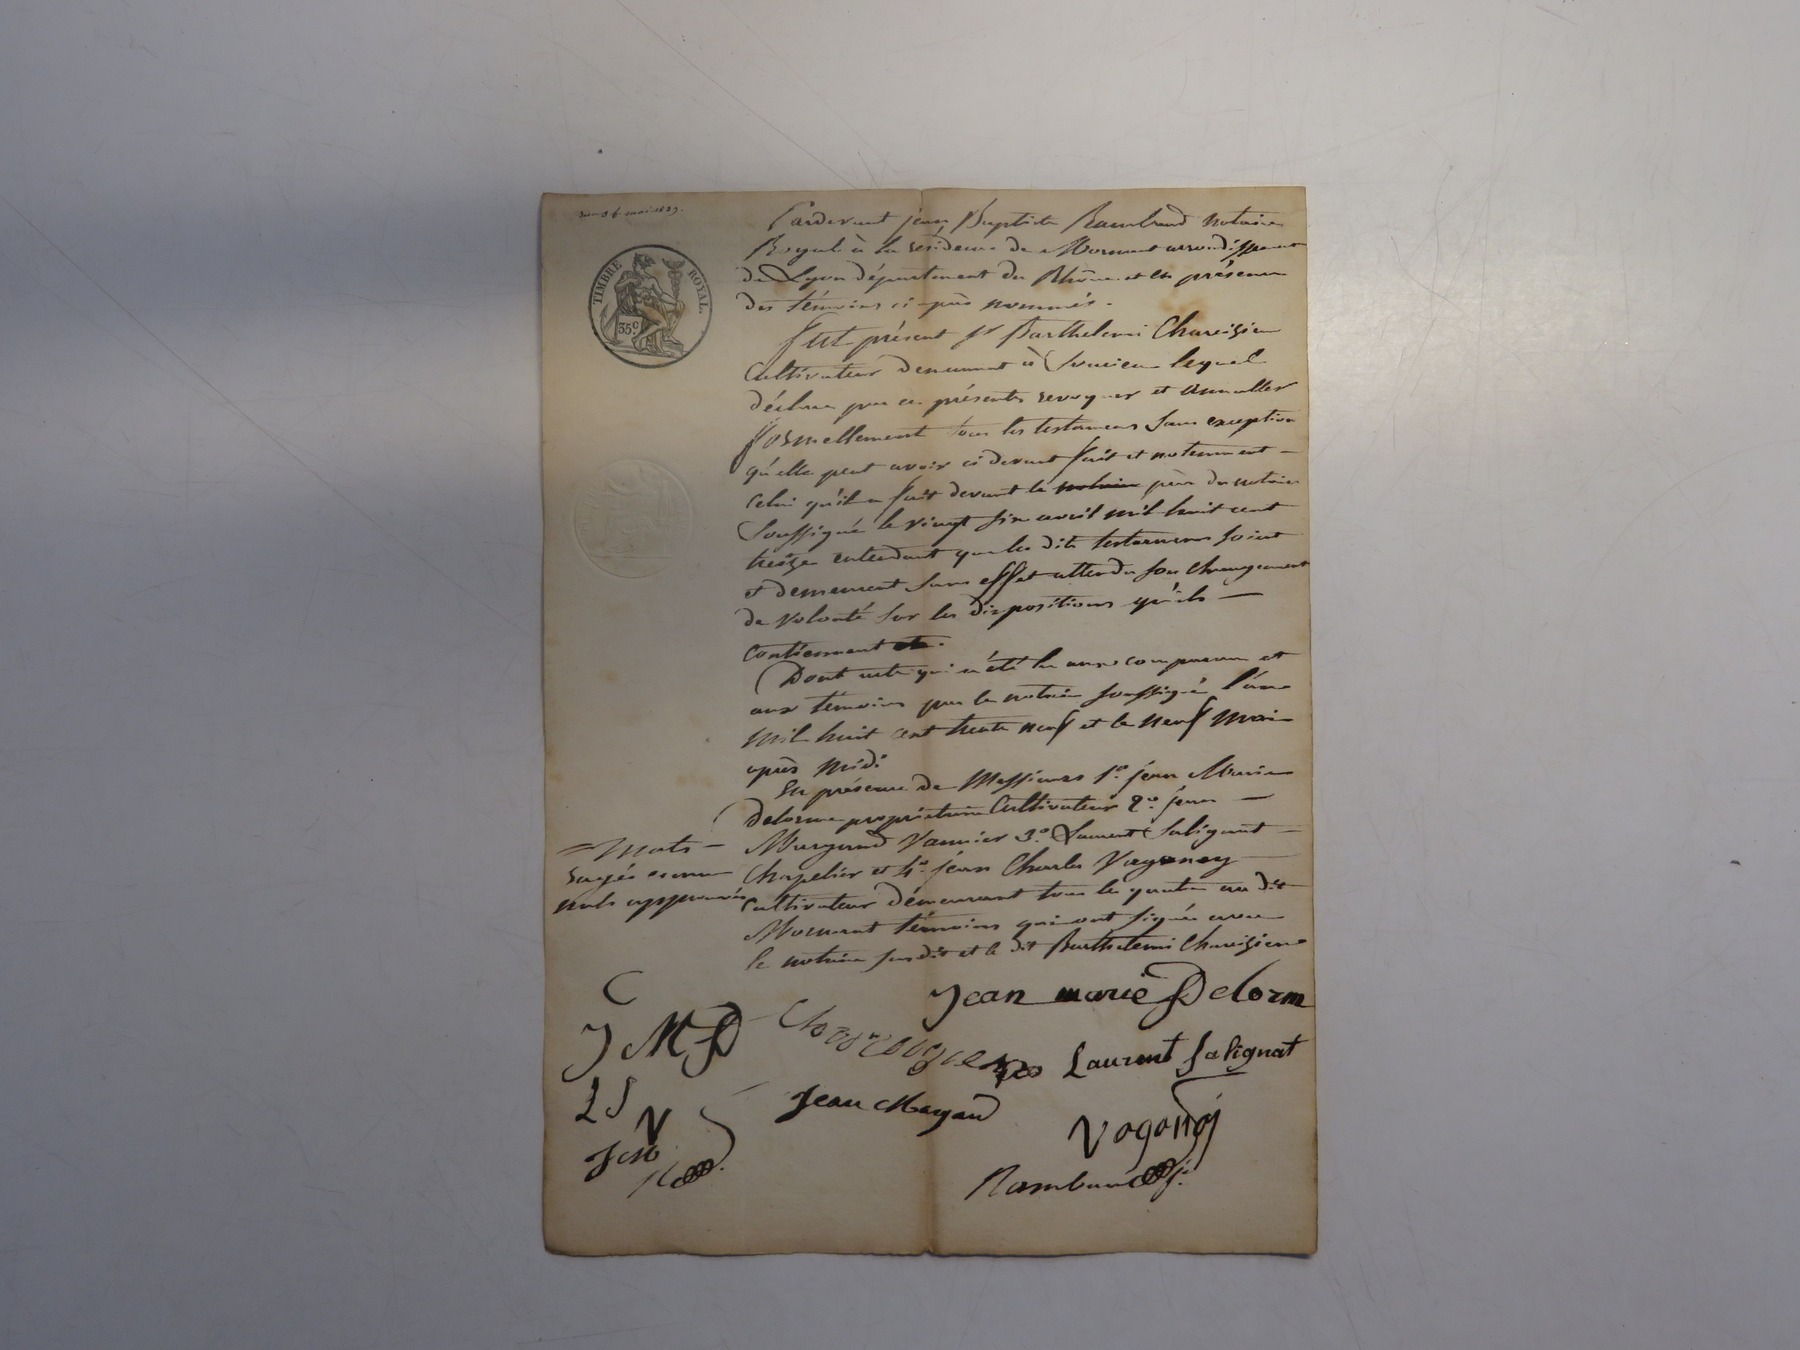 mai 1839.
TIMBRE ROYAL.
35c
Pardevant jean Baptiste Rambaud notaire
Royal à la résidence de Mornant arrondissement
de Lyon département du Rhône et en présence
des témoins ci-après nommés.
fut présent sr Barthelemi Chareizieu
Cultivateur demeurant à Soucieu lequel
déclare par ces présentes revoquer et annuller
formellement tous les testamens sans exception
qu'elle peut avoir ci devant fait et notemment
celui qu'il a fait devant le notaire père du notaire
soussigné le vingt six avril mil huit cent
treize entendant que les dits testamens soient
et demeurent sans effet attendu son changement
de volonté sur les dispositions qu'ils
contiennent
Dont acte qui a été lu aux comparan et
aux témoins par le notaire soussigné l'an
mil huit cent trente neuf et le neuf mai
après midi
En présence de Messieurs 1o jean Marie
delorme propriétaire Cultivateur 2o jean
Vannier 3o Laurent Salignat
Chapelier et 4o jean Charles Vagoney
cultivateur demeurant tous les quatre au dit
Mornant témoins qui ont signé avec
le notaire susdit et le dit Barthelemi Chareizieu
= Mots
rayés comme
nuls approuvés
C
J M D
L S
V
Jean marie Delorm
Laurent Salignat
Jean
Rambaud